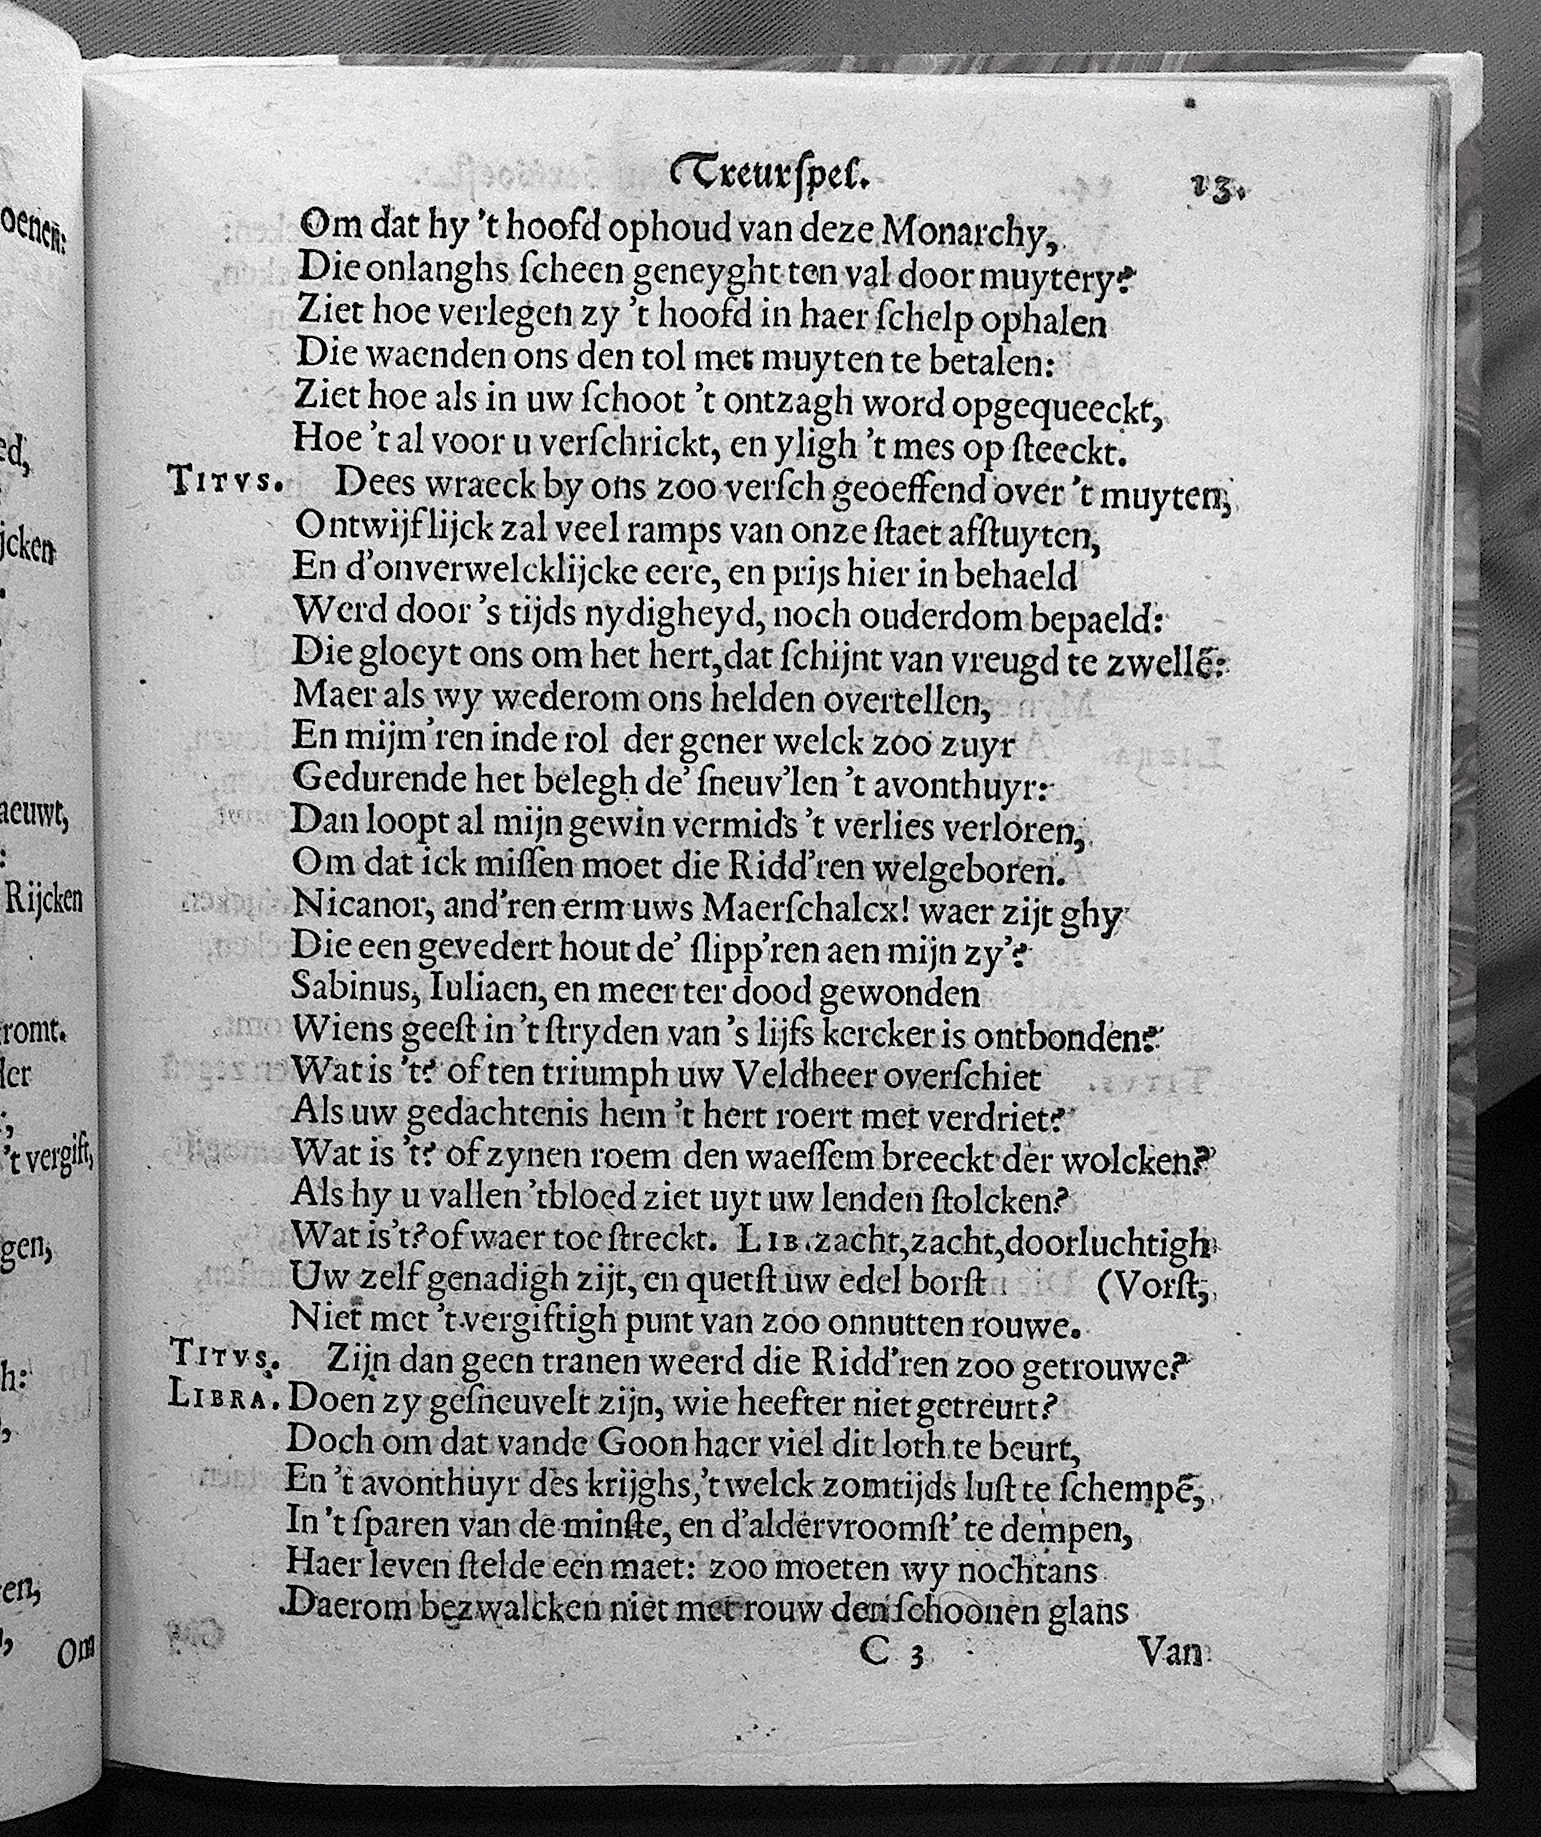 Treurſpel. 23.
Om dat hy 't hoofd ophoud van deze Monarchy,
Die onlanghs ſcheen geneyght ten val door muytery?
Ziet hoe verlegen zy 't hoofd in haer ſchelp ophalen
Die waenden ons den tol met muyten te betalen:
Ziet hoe als in uw ſchoot 't ontzagh word opgequeeckt,
Hoe 't al voor u verſchrickt, en yligh 't mes op ſteeckt.
TITVS. Dees wraeck by ons zoo verſch geoeffend over 't muyten,
Ontwijflijck zal veel ramps van onze ſtaet afſtuyten,
En d'onverwelcklijcke eere, en prijs hier in behaeld
Werd door 's tijds nydigheyd, noch ouderdom bepaeld:
Die gloeyt ons om het hert, dat ſchijnt van vreugd te zwellē:
Maer als wy wederom ons helden overtellen,
En mijm'ren inde rol der gener welck zoo zuyr
Gedurende het belegh de' ſneuv'len 't avonthuyr:
Dan loopt al mijn gewin vermids 't verlies verloren,
Om dat ick miſſen moet die Ridd'ren welgeboren.
Nicanor, and'ren erm uws Maerſchalcx! waer zijt ghy
Die een gevedert hout de' ſlipp'ren aen mijn zy'?
Sabinus, Iuliaen, en meer ter dood gewonden
Wiens geeſt in 't ſtryden van 's lijfs kercker is ontbonden?
Wat is 't? of ten triumph uw Veldheer overſchiet
Als uw gedachtenis hem 't hert roert met verdriet?
Wat is 't? of zynen roem den waeſſem breeckt der wolcken?
Als hy u vallen 'tbloed ziet uyt uw lenden ſtolcken?
Wat is't? of waer toe ſtreckt. LIB. zacht, zacht, doorluchtigh
Uw zelf genadigh zijt, en quetſt uw edel borſt (Vorſt,
Niet met 't vergiftigh punt van zoo onnutten rouwe.
TITVS. Zijn dan geen tranen weerd die Ridd'ren zoo getrouwe?
LIBRA. Doen zy geſneuvelt zijn, wie heefter niet getreurt?
Doch om dat vande Goon haer viel dit loth te beurt,
En 't avonthuyr des krijghs, 't welck zomtijds luſt te ſchempē,
In 't ſparen van de minſte, en d'aldervroomſt' te dempen,
Haer leven ſtelde een maet: zoo moeten wy nochtans
Daerom bezwalcken niet met rouw den ſchoonen glans
C 3 Van
oenen:
ed,
jcken
aeuwt,
:
Rijcken
romt.
der
;
't vergift,
gen,
h:
,
en,
Om